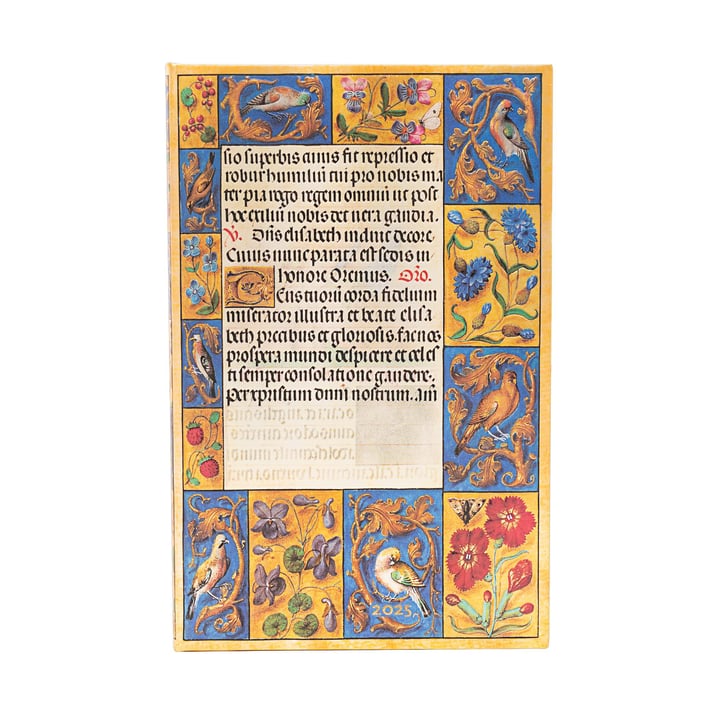 sio superbis cuius fit repressio et
robur humiliū tui pro nobis ma
ter pia rogo regem omniū ut post
hoc exiliū nobis det vera gaudia.
V. Dn̄s elisabeth induit decore.
Cuius nunc parata est sedis in
honore Oremus. Or̄o.
Deus tuorū corda fidelium
miserator illustra et beate elisa
beth precibus et gloriosis. fac nos
prospera mundi despicere et celes
ti semper consolatione gaudere.
Per xpristum dnm̄ nostrum. am̄
2025